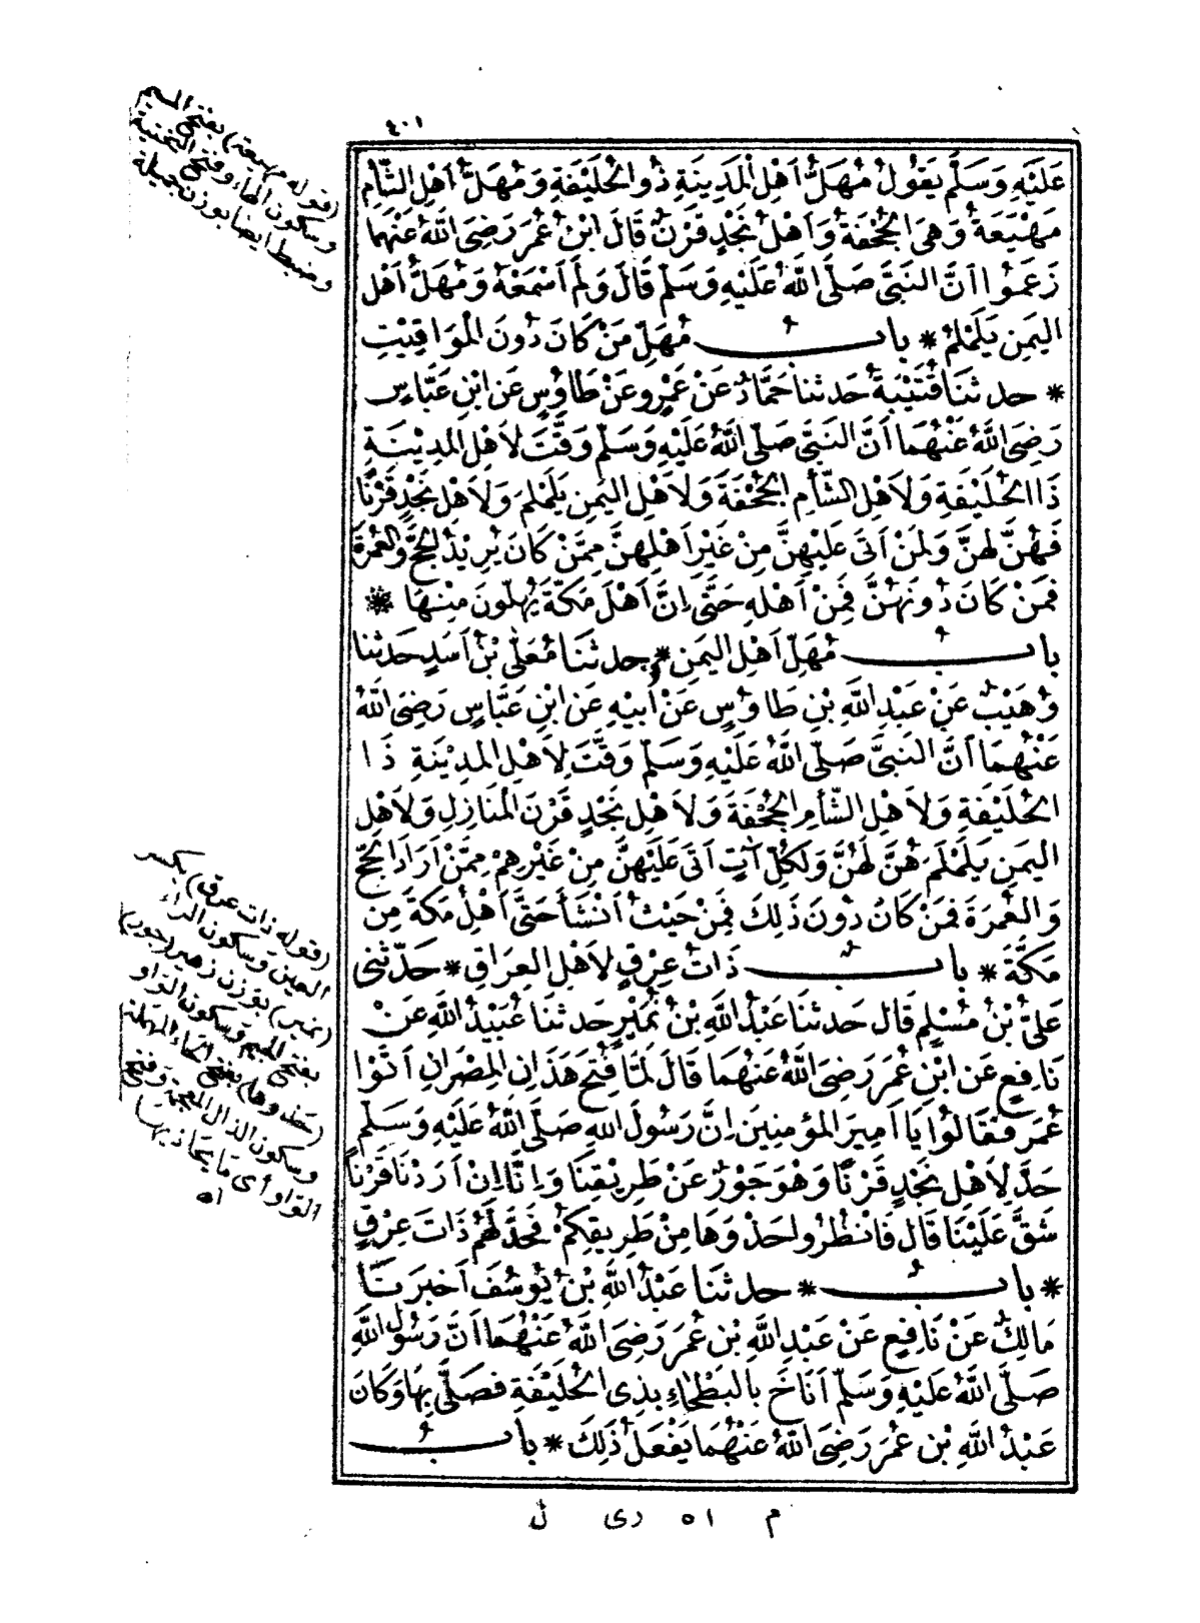 ٤٠١
عَلَيْهِ وَسَلَّمَ يَقُولُ مُهَلُّ أَهْلِ الْمَدِينَةِ ذُو الْحُلَيْفَةِ وَمُهَلُّ أَهْلِ الشَّأْمِ
مَهْيَعَةُ وَهِيَ الْجُحْفَةُ وَأَهْلُ نَجْدٍ قَرْنٌ قَالَ ابْنُ عُمَرَ رَضِيَ اللَّهُ عَنْهُمَا
زَعَمُوا أَنَّ النَّبِيَّ صَلَّى اللَّهُ عَلَيْهِ وَسَلَّمَ قَالَ وَلَمْ أَسْمَعْهُ وَمُهَلُّ أَهْلِ
الْيَمَنِ يَلَمْلَمُ * بَابُ مُهَلِّ مَنْ كَانَ دُونَ الْمَوَاقِيْتِ
* حدثنَا قُتَيْبَةُ حَدثنا حَمَّادٌ عَنْ عَمْرٍو عَنْ طَاوُسٍ عَنِ ابْنِ عَبَّاسٍ
رَضِيَ اللَّهُ عَنْهُمَا أَنَّ النَّبِيَّ صَلَّى اللَّهُ عَلَيْهِ وَسَلَّمَ وَقَّتَ لِأَهْلِ الْمَدِيْنَةِ
ذَا الْحُلَيْفَةِ وَلِأَهْلِ الشَّأْمِ الْجُحْفَةَ وَلِأَهْلِ الْيَمَنِ يَلَمْلَمَ وَلِأَهْلِ نَجْدٍ قَرْنًا
فَهُنَّ لَهُنَّ وَلِمَنْ أَتَى عَلَيْهِنَّ مِنْ غَيْرِ أَهْلِهِنَّ مِمَّنْ كَانَ يُرِيْدُ الْحَجَّ وَالْعُمْرَةَ
فَمَنْ كَانَ دُونَهُنَّ فَمِنْ أَهْلِهِ حَتَّى إِنَّ أَهْلَ مَكَّةَ يُهِلُّونَ مِنْهَا *
بَابُ مُهَلِّ أَهْلِ الْيَمَنِ * حدثنَا مُعَلَّى بْنُ أَسَدٍ حَدثنا
وُهَيْبٌ عَنْ عَبْدِ اللَّهِ بْنِ طَاوُسٍ عَنْ أَبِيْهِ عَنِ ابْنِ عَبَّاسٍ رَضِيَ اللَّهُ
عَنْهُمَا أَنَّ النَّبِيَّ صَلَّى اللَّهُ عَلَيْهِ وَسَلَّمَ وَقَّتَ لِأَهْلِ الْمَدِيْنَةِ ذَا
الْحُلَيْفَةِ وَلِأَهْلِ الشَّأْمِ الْجُحْفَةَ وَلِأَهْلِ نَجْدٍ قَرْنَ الْمَنَازِلِ وَلِأَهْلِ
الْيَمَنِ يَلَمْلَمَ هُنَّ لَهُنَّ وَلِكُلِّ آتٍ أَتَى عَلَيْهِنَّ مِنْ غَيْرِهِمْ مِمَّنْ أَرَادَ الْحَجَّ
وَالْعُمْرَةَ فَمَنْ كَانَ دُونَ ذَلِكَ فَمِنْ حَيْثُ أَنْشَأَ حَتَّى أَهْلُ مَكَّةَ مِنْ
مَكَّةَ * بَابُ ذَاتُ عِرْقٍ لِأَهْلِ الْعِرَاقِ * حَدَّثَنِي
عَلِيُّ بْنُ مُسْلِمٍ قَالَ حَدثنَا عَبْدُ اللَّهِ بْنُ نُمَيْرٍ حَدثنَا عُبَيْدُ اللَّهِ عَنْ
نَافِعٍ عَنِ ابْنِ عُمَرَ رَضِيَ اللَّهُ عَنْهُمَا قَالَ لَمَّا فُتِحَ هَذَانِ الْمِصْرَانِ أَتَوْا
عُمَرَ فَقَالُوا يَا أَمِيرَ الْمُؤْمِنِينَ إِنَّ رَسُولَ اللهِ صَلَّى اللَّهُ عَلَيْهِ وَسَلَّمَ
حَدَّ لِأَهْلِ نَجْدٍ قَرْنًا وَهُوَ جَوْرٌ عَنْ طَرِيْقِنَا وَإِنَّا إِنْ أَرَدْنَا قَرْنًا
شَقَّ عَلَيْنَا قَالَ فَانْظُرُوا حَذْوَهَا مِنْ طَرِيقِكُمْ فَحَدَّ لَهُمْ ذَاتَ عِرْقٍ
* بَابُ * حدثنَا عَبْدُ اللَّهِ بْنُ يُوسُفَ أَخْبَرَنَا
مَالِكٌ عَنْ نَافِعٍ عَنْ عَبْدِ اللَّهِ بْنِ عُمَرَ رَضِيَ اللَّهُ عَنْهُمَا أَنَّ رَسُولَ اللَّهِ
صَلَّى اللَّهُ عَلَيْهِ وَسَلَّمَ أَنَاخَ بِالْبَطْحَاءِ بِذِي الْحُلَيْفَةِ فَصَلَّى بِهَا وَكَانَ
عَبْدُ اللَّهِ بْنُ عُمَرَ رَضِيَ اللَّهُ عَنْهُمَا يَفْعَلُ ذَلِكَ * بَابُ
(قوله مهيعة) بفتح الميم
وسكون الهاء وفتح التحتية
وضبط ايضا بوزن جميلة
(قوله ذات عرق) بكسر
العين وسكون الراء
(نمير) بوزن زهير (جور)
بفتح الجيم وسكون الواو
(حذوها) بفتح الحاء المهملة
وسكون الذال المعجمة وفتح
الواو أى ما يحاذيها
اه
م اه دى ل